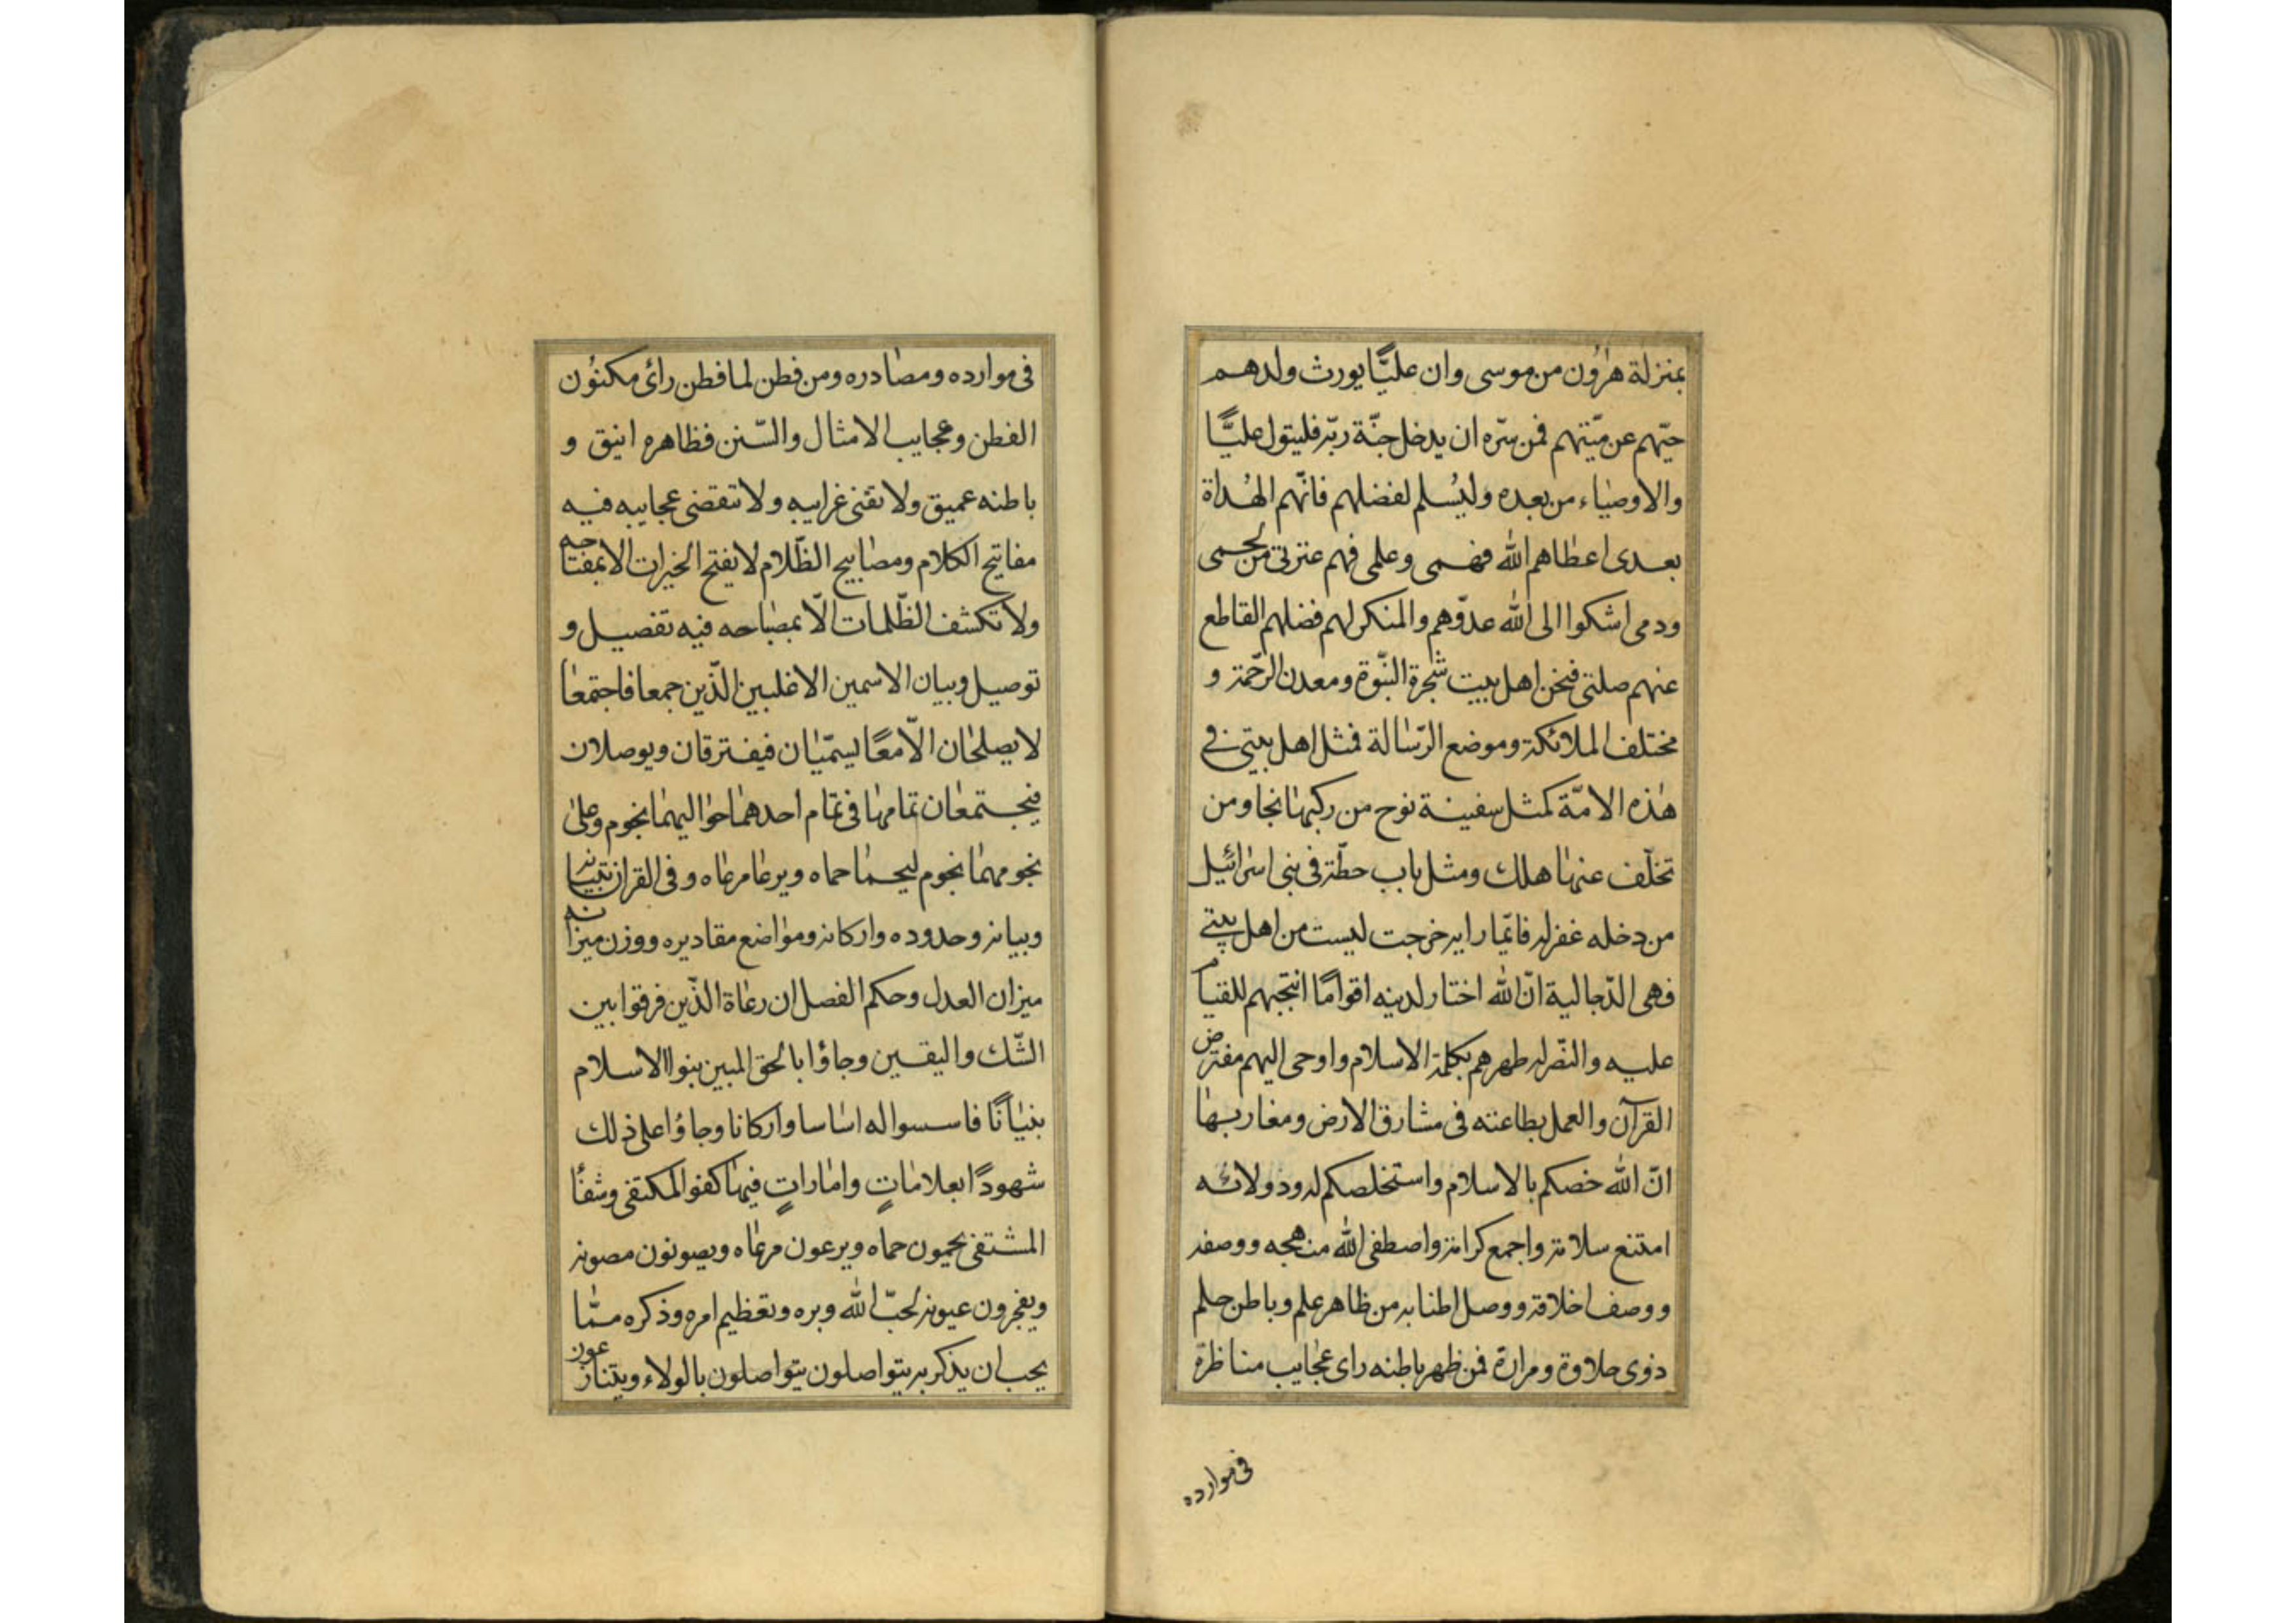 بمنزلة هٰرون من موسى وان عليًّا يورث ولدهم
حيّهم عن ميّتهم فمن سرّه ان يدخل جنّة ربّه فليتول عليًّا
والاوصياء من بعده وليسلم لفضلهم فانّهم الهُداة
بعدى اعطاهم الله فهمى وعلمى فهم عترتى من لحمى
ودمى اشكوا الى الله عدوّهم والمنكر لهم فضلهم القاطع
عنهم صلتى فنحن اهل بيت شجرة النبّوة ومعدن الرّحمة و
مختلف الملائكة وموضع الرّسالة فمثل اهل بيتى فى
هٰذه الامّة كمثل سفينة نوح من ركبها نجا ومن
تخلّف عنها هلك ومثل باب حطّة فى بنى اسرائيل
من دخله غفر له فانّما راية خرجت ليست من اهل بيتى
فهى الدّجالية انّ الله اختار لدينه اقوامًا انتجبهم للقيام
عليه والنّصر له طهرهم بكلمة الاسلام واوحى اليهم مفترض
القرآن والعمل بطاعته فى مشارق الارض ومغاربها
انّ الله خصكم بالاسلام واستخلصكم له وذو لائه
امتنع سلامة واجمع كرامة واصطفى الله منهجه ووصفه
ووصف اخلاقه ووصل اطنابه من ظاهر علم وباطن حلم
ذوى حلاوة ومرارة فمن ظهر باطنه راى عجايب مناظرة
فى موارده
فى موارده ومصادره ومن فطن لما فطن رائ مكنون
الفطن وعجايب الامثال والسّنن فظاهره انيق و
باطنه عميق ولا تفنى غرايبه ولا تنقضى عجايبه فيه
مفاتيح الكلام ومصابيح الظّلام لا يفتح الخيرات الا بمفتاحه
ولا تكشف الظّلمات الّا بمصباحه فيه تفصيل و
توصيل وبيان الاسمين الاغلبين الذّين جمعا فاجتمعا
لا يصلحان الّا معًا يسمّيان فيفترقان ويوصلان
فيجتمعان تمامها فى تمام احدهما حواليهما نجوم وعلى
نجومهما نجوم ليحما حماه ويرعا مرعاه وفى القران تبيانه
وبيانه وحدوده واركانه ومواضع مقاديره ووزن ميزانه
ميزان العدل وحكم الفصل ان رعاة الدّين فرقوا بين
الشّك واليقين وجاؤا بالحق المبين بنوا الاسلام
بنيانًا فاسسوا له اساسا واركانا وجاؤا على ذلك
شهودًا بعلاماتٍ واماراتٍ فيها كفو المكتفى وشفأ
المشتفى يحمون حماه ويرعون مرعاه ويصونون مصونه
ويفجرون عيونه لحبّ الله وبره وتعظيم امره وذكره ممّا
يحب ان يذكر به يتواصلون يتواصلون بالولاء ويتنازعون